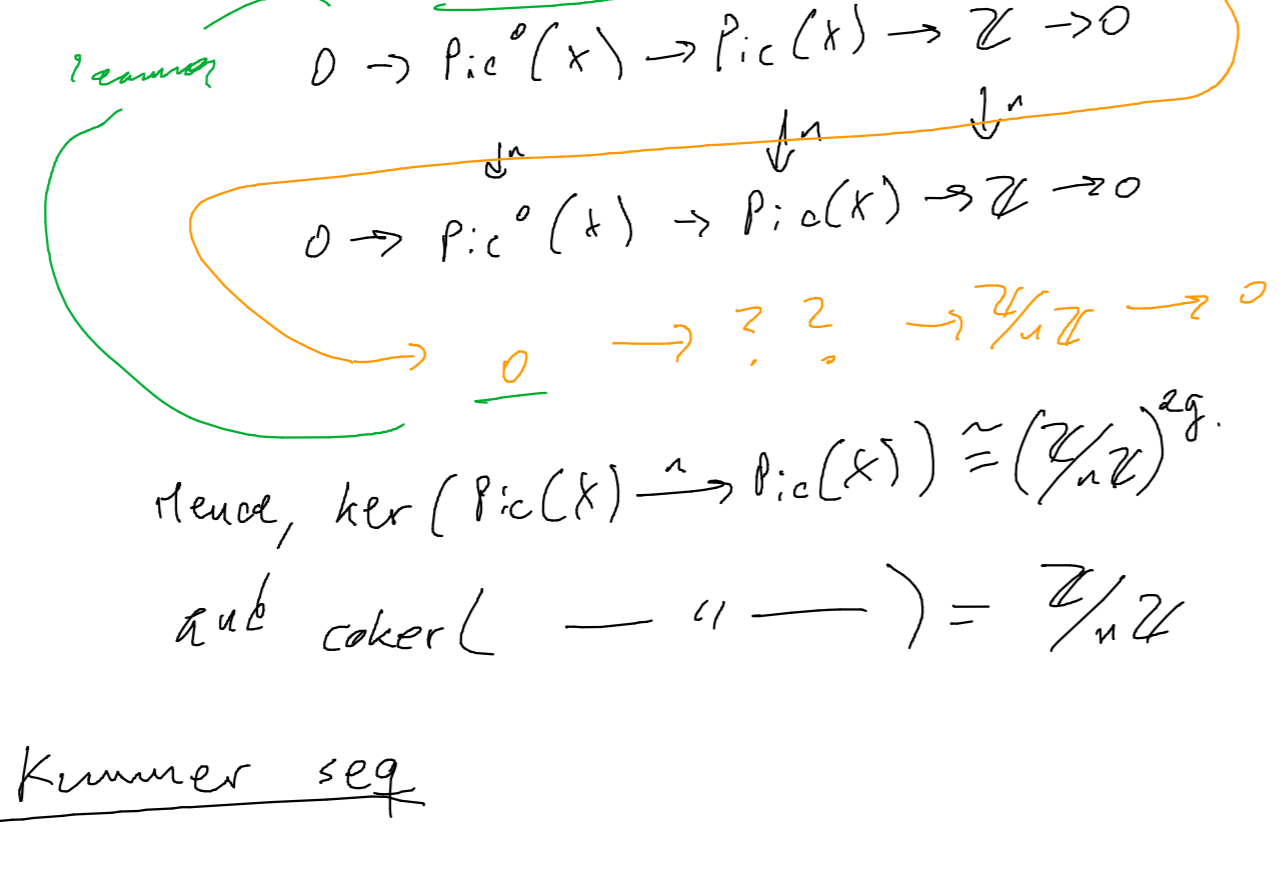 0 → Pic⁰(X) → Pic(X) → ℤ → 0
↓n ↓n ↓n
0 → Pic⁰(X) → Pic(X) → ℤ → 0
0 → ?? → ℤ/nℤ → 0
Hence, ker(Pic(X) –n→ Pic(X)) ≅ (ℤ/nℤ)^2g.
and coker( — " — ) = ℤ/nℤ
Kummer seq